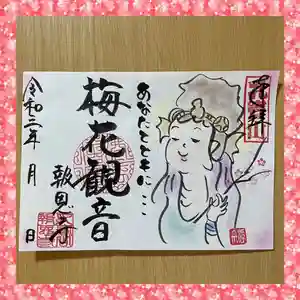 奉拝
あなたとともにここ
梅花観音
報恩寺
令和二年 月 日